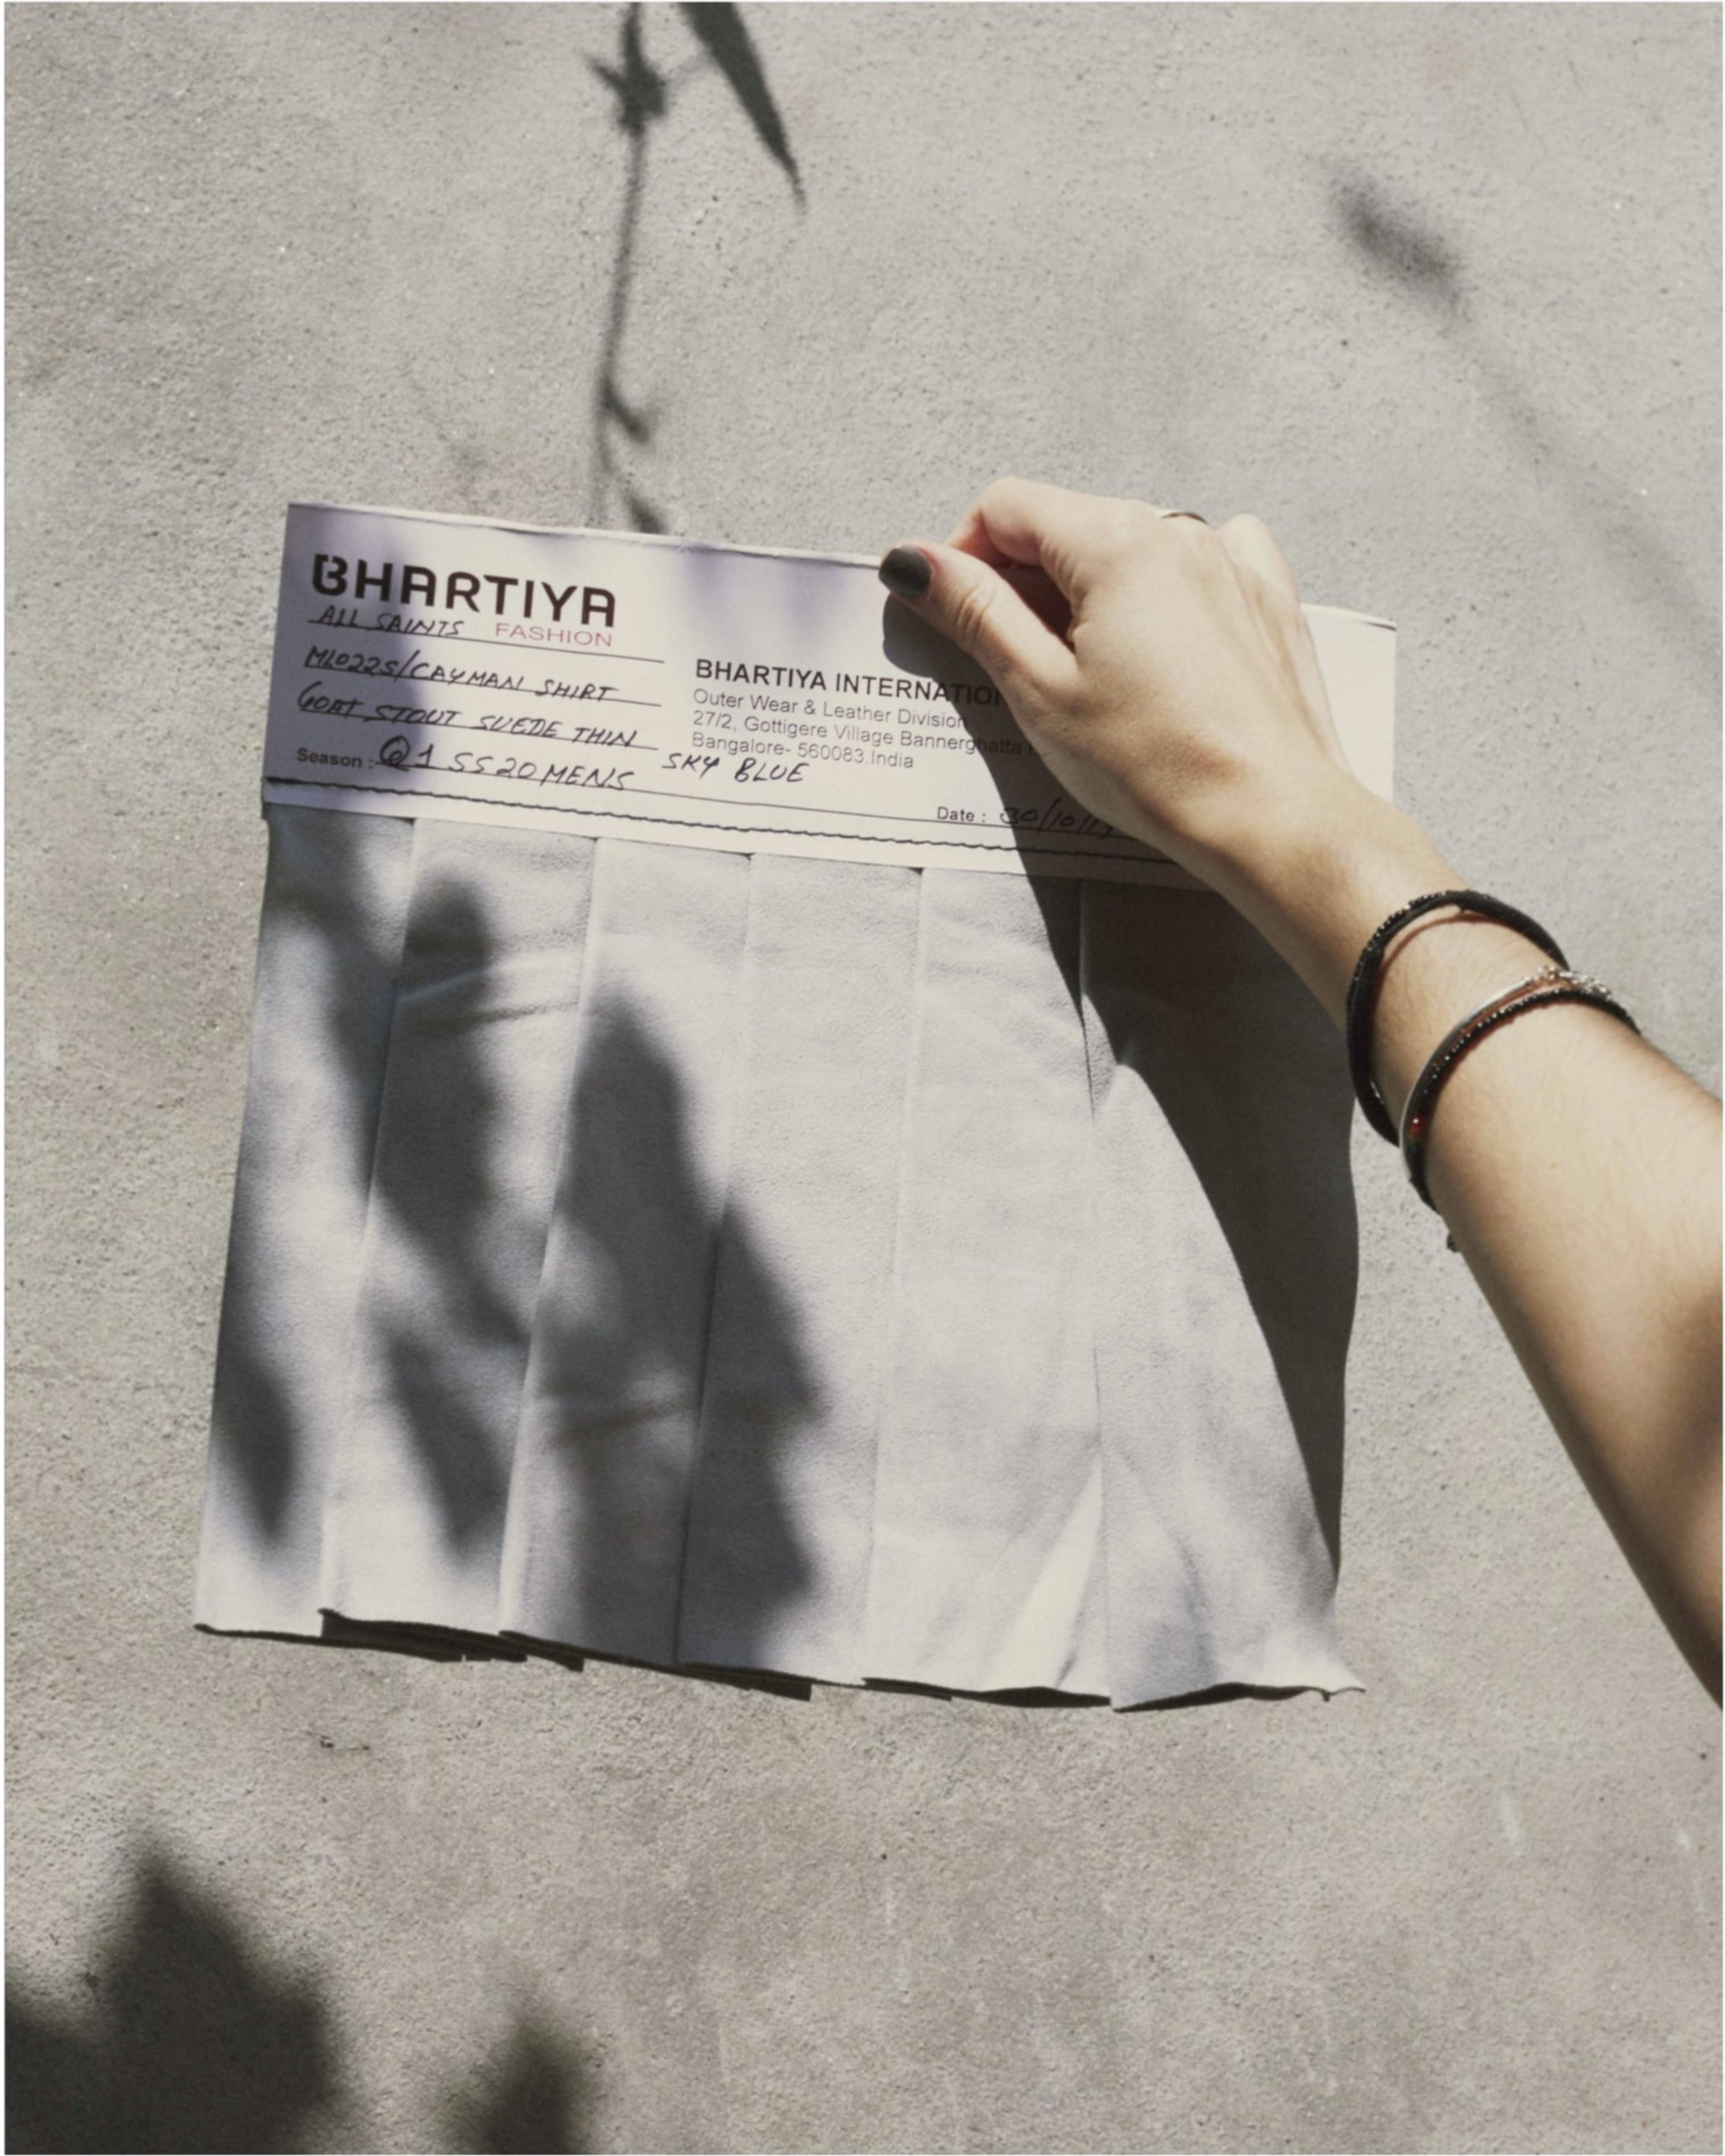 BHARTIYA
FASHION
ALL SAINTS
ML022S/CAYMAN SHIRT
GOAT STOUT SUEDE THIN
Season : @1 SS20 MENS SKY BLUE
BHARTIYA
Outer Wear & Leather Division
27/2, Gottigere Village Bannerghatta
Bangalore- 560083,India
Date :